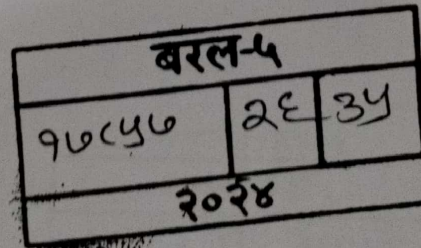 बरल-५
१७८५७ २६ ३५
२०२४